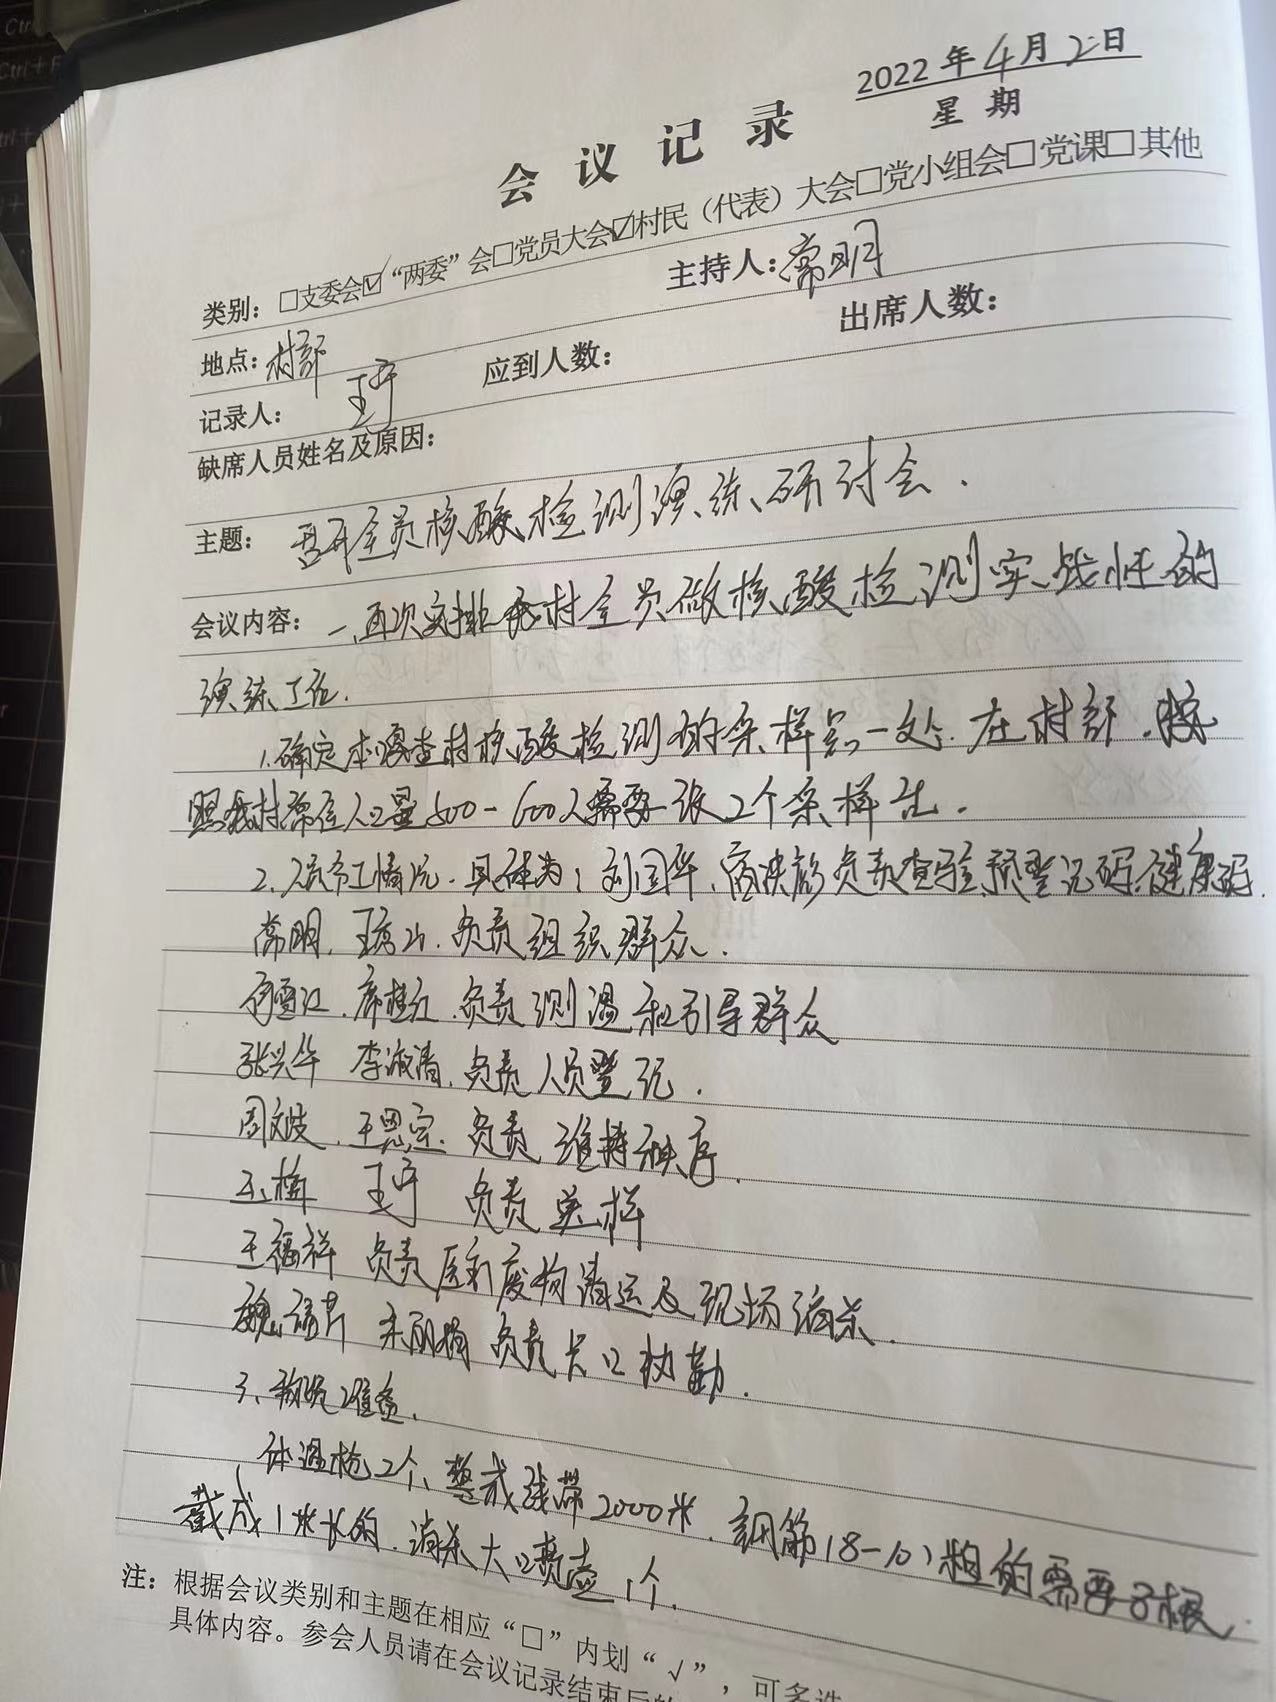 2022年4月2日
星期
会议记录
类别：□支委会☑“两委”会□党员大会☑村民（代表）大会□党小组会□党课□其他
地点：村部 主持人：常明
记录人：王宁 应到人数： 出席人数：
缺席人员姓名及原因：
主题：召开全员核酸检测演练研讨会.
会议内容：一、再次安排我村全员做核酸检测实战性的
演练工作.
1.确定本 村核酸检测的采样点一处.在村部.按
照我村常住人口量500-600人需要一张2个采样
2、人员分工情况.具体为：刘国华、 负责查验预登记码、健康码.
常明、 负责组织群众.
席桂红.负责测温和引导群众
张兴华 李淑清.负责人员登记.
周文 .王恩宗.负责维持秩序.
王宁 负责采样
王福祥 负责医疗废物清运及现场消杀.
负责卡口执勤.
3、物资准备.
体温枪2个、警戒线带2000米.钢筋(8-10)粗的需要8根
截成1米长的.消杀大口喷壶1个.
注：根据会议类别和主题在相应“□”内划“√”，可多选
具体内容。参会人员请在会议记录结束后